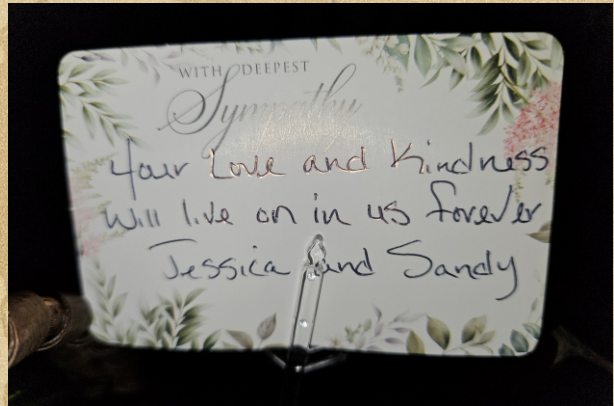 WITH DEEPEST
Sympathy
Your Love and Kindness
Will live on in us forever
Jessica and Sandy